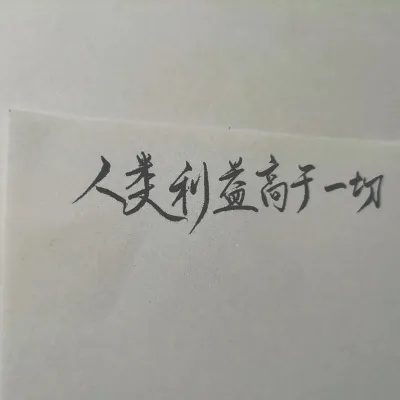 人类利益高于一切